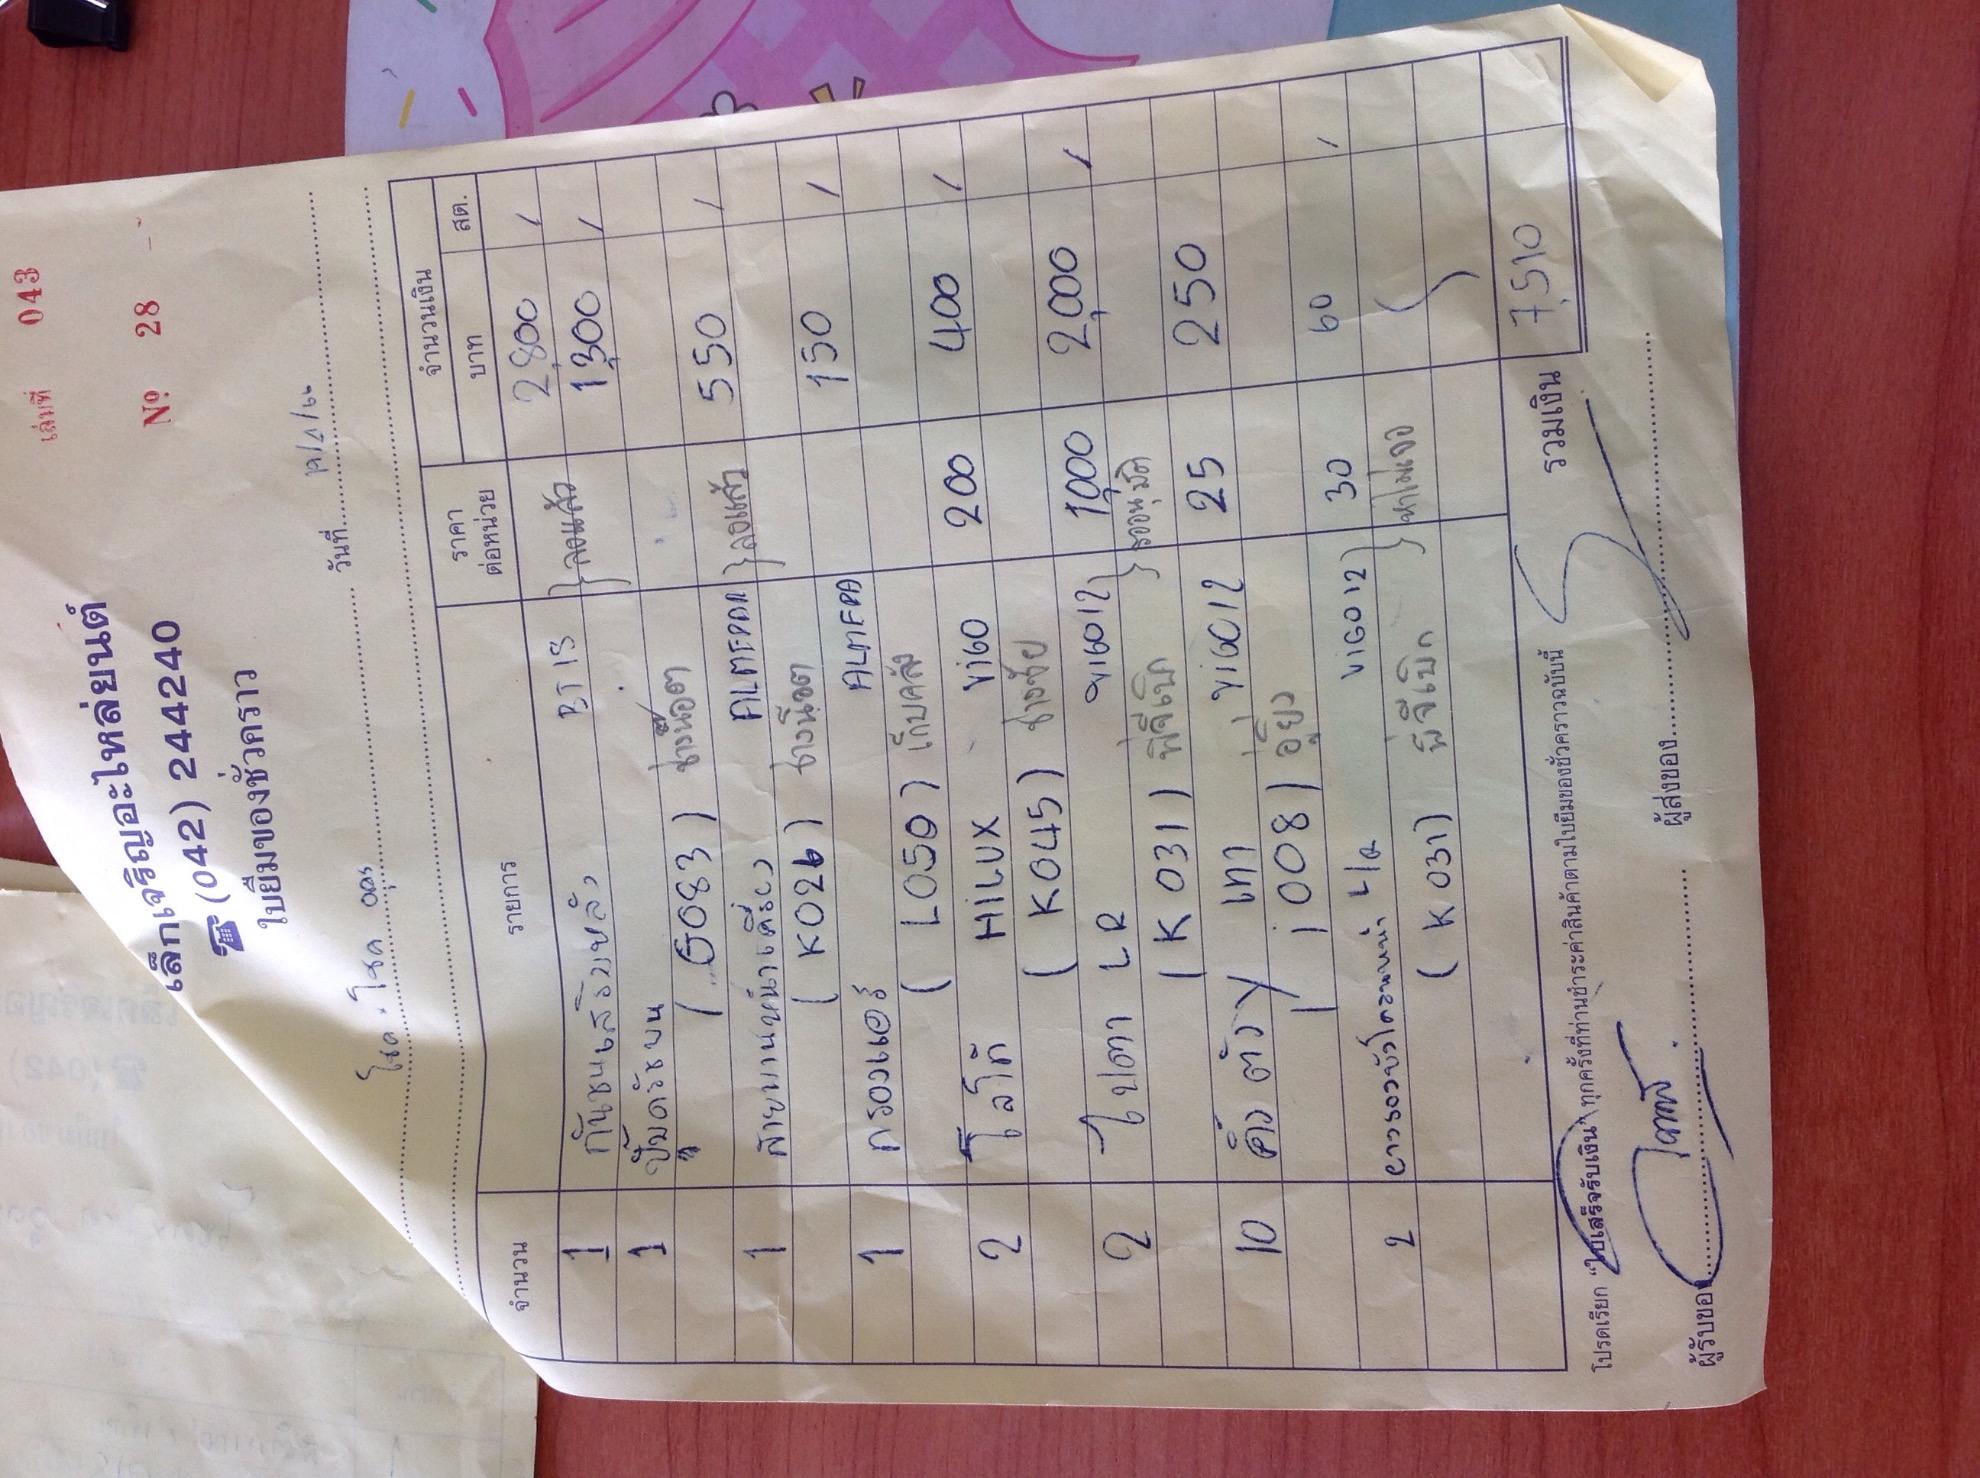 เล่มที่ 043
เล็กเจริญอะไหล่ยนต์
☎ (042) 244240
Nº 28
ใบยืมของชั่วคราว
วันที่
จำนวน รายการ ราคาต่อหน่วย จำนวนเงิน
บาท สต.
1 กันชนเสริมหลัง BT 1S 2,800
1 ปั๊มครัชบน } ลงแล้ว 1,300
(G083) ช่างน๊อต
1 สายพานหน้าเครื่อง ALMERA 550
(K026) ช่างน๊อต } ลงแล้ว
1 กรองแอร์ ALMERA 150
(L050) เก็บคลัง
2 โลโก้ HILUX VIGO 200 400
(K045) ช่างชัย
2 ไฟตา LR VIGO12 1,000 2,000
(K031) พี่จีเบิก } รออนุมัติ
10 คิ้ว ตัว Y เทา VIGO12 25 250
(J008) อู๋
2 ยางรอง หน้า VIGO12 30 60
(K031) พี่จีเบิก } หาไม่เจอ
รวมเงิน 7,510
โปรดเรียก "ใบเสร็จรับเงิน" ทุกครั้งที่ท่านชำระค่าสินค้าตามใบยืมของชั่วคราวฉบับนี้
ผู้รับของ ผู้ส่งของ